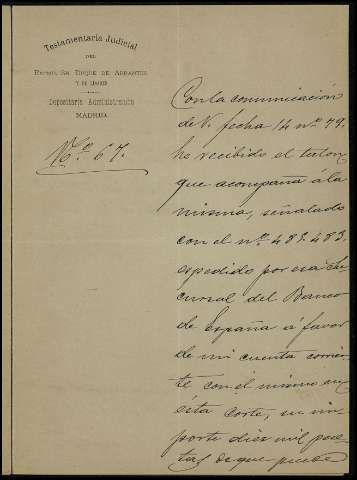 Testamentaría Judicial
DEL
EXCMO. SR. DUQUE DE ABRANTES
Y DE LINARES
Depositaría Administración
MADRID
N.º 67.
Con la comunicación
de V. fecha 14 nº 79.
he recibido el talon
que acompaña á la
misma, señalado
con el nº 483.483,
espedido por esa Su
cursal del Banco
de España á favor
de mi cuenta corrien
te con el mismo en
ésta Corte, su im
porte diez mil pese
tas de que puede